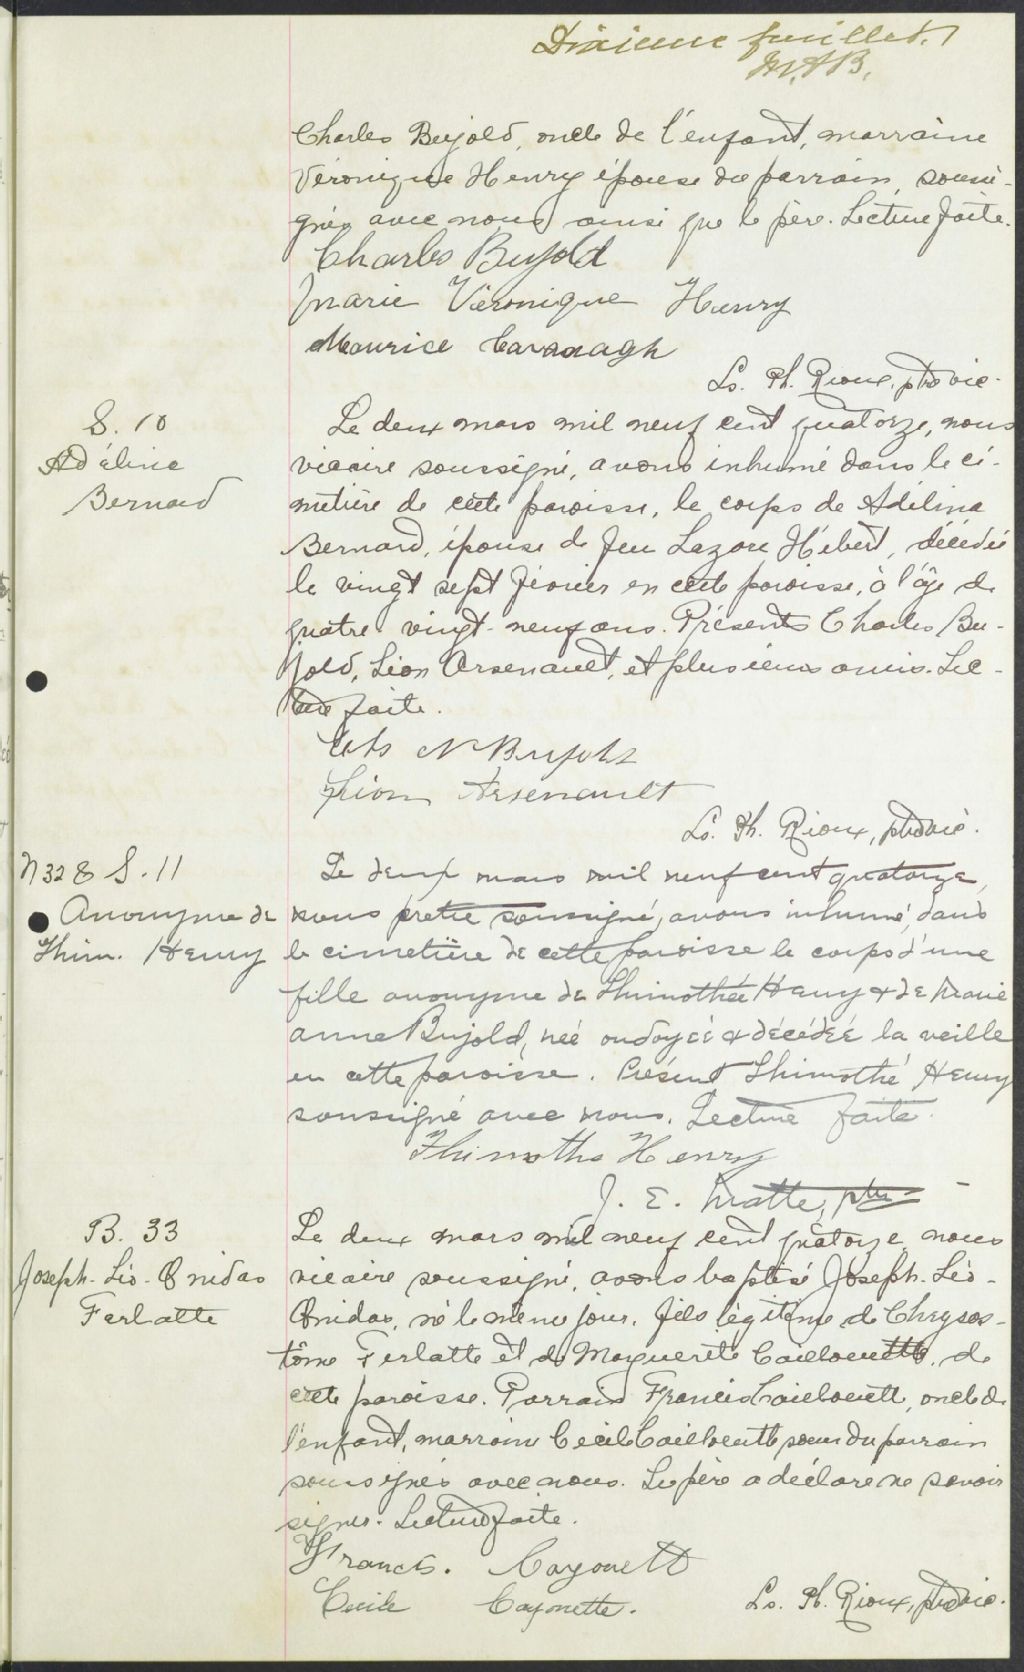 Dixième feuillet.
Charles Bujold, oncle de l'enfant, marraine
Véronique Henry épouse du parrain, soussi-
gnés avec nous ainsi que le père. Lecture faite.
Charles Bujold
Marie Véronique Henry
Maurice Cavanagh
Ls. Ph. Rioux, ptre vic.
S. 10
Adélina
Bernard
Le deux mars mil neuf cent quatorze, nous
vicaire soussigné, avons inhumé dans le ci-
metière de cette paroisse, le corps de Adélina
Bernard, épouse de feu Lazare Hébert, décédée
le vingt sept février en cette paroisse, à l'âge de
quatre-vingt-neuf ans. Présents Charles Bu-
jold, Léon Arsenault, et plusieurs amis. Lec-
ture faite.
Chs N Bujold
Léon Arsenault
Ls. Ph. Rioux, ptre vic.
N 32 & S. 11
Anonyme de
Thim. Henry
Le deux mars mil neuf cent quatorze,
nous prêtre soussigné, avons inhumé, dans
le cimetière de cette paroisse le corps d'une
fille anonyme de Thimothée Henry & de Marie
Anne Bujold, née ondoyée & décédée la veille
en cette paroisse. Présent Thimothé Henry
soussigné avec nous. Lecture faite.
Thimothe Henry
J. E. Matte, ptre
B. 33
Joseph-Léo-Onidas
Ferlatte
Le deux mars mil neuf cent quatorze, nous
vicaire soussigné, avons baptisé Joseph-Léo-
Onidas, né le même jour, fils légitime de Chrysos-
tôme Ferlatte et de Marguerite Caillouette, de
cette paroisse. Parrain Francis Caillouette, oncle de
l'enfant, marraine Cecile Caillouette soeur du parrain
soussignés avec nous. Le père a déclaré ne savoir
signer. Lecture faite.
Francis. Cayouett
Cecile Cayouette.
Ls. Ph. Rioux, ptre vic.